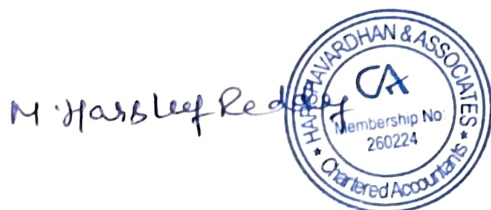 M. Reddy
HARSHAVARDHAN & ASSOCIATES
CA
Membership No:
260224
★ Chartered Accountants ★